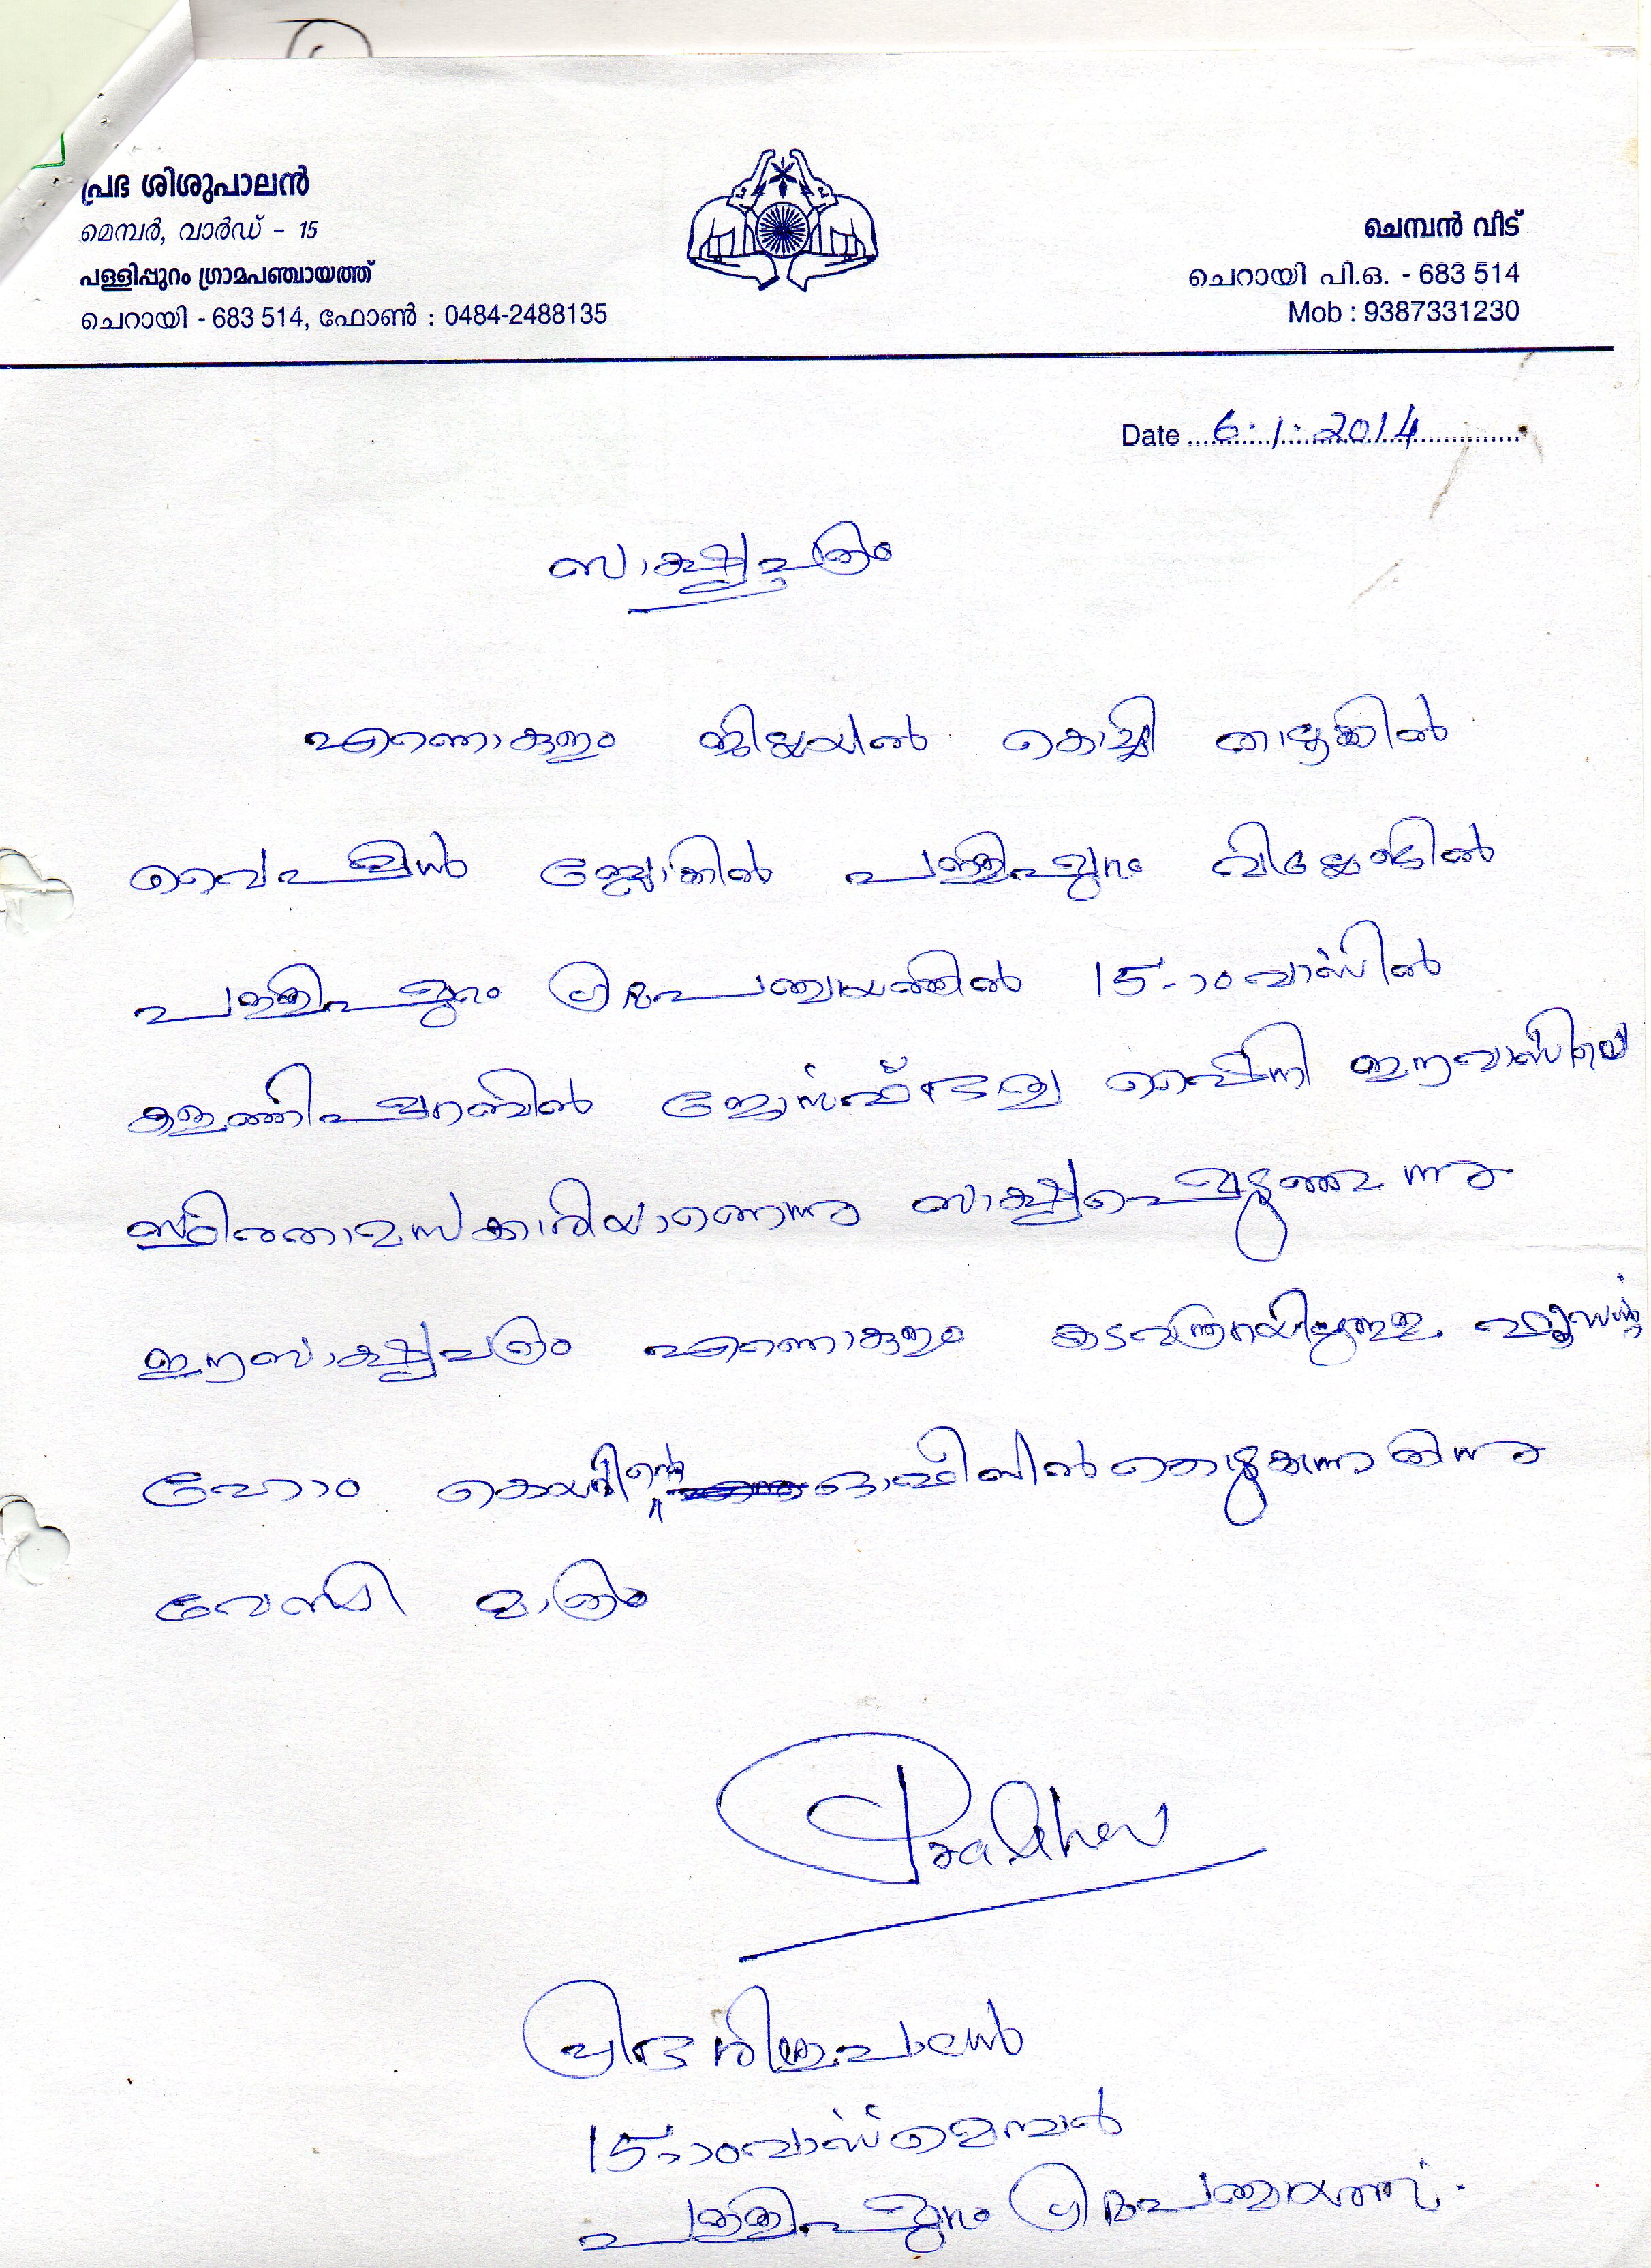 പ്രഭ ശിശുപാലൻ
മെമ്പർ, വാർഡ് – 15
പള്ളിപ്പുറം ഗ്രാമപഞ്ചായത്ത്
ചെറായി - 683 514, ഫോൺ : 0484-2488135
ചെമ്പൻ വീട്
ചെറായി പി.ഒ. - 683 514
Mob : 9387331230
Date 6.1.2014
സാക്ഷ്യപത്രം
എറണാകുളം ജില്ലയിൽ കൊച്ചി താലൂക്കിൽ
വൈപ്പിൻ ബ്ലോക്കിൽ പള്ളിപ്പുറം വില്ലേജിൽ
പള്ളിപ്പുറം ഗ്രാമപഞ്ചായത്തിൽ 15-ാംവാർഡിൽ
കളത്തിപ്പറമ്പിൽ ജോസഫ് ഭാര്യ ഈവാർഡിലെ
സ്ഥിരതാമസക്കാരിയാണെന്നു സാക്ഷ്യപ്പെടുത്തുന്നു
ഈസാക്ഷ്യപത്രം എറണാകുളം കടവന്ത്രയിലുള്ള
ഹോം കെയറിന്റെ ഓഫീസിൽ നൽകുന്നതിനു
വേണ്ടി മാത്രം
Prabha
പ്രഭ ശിശുപാലൻ
15-ാംവാർഡ് മെമ്പർ
പള്ളിപ്പുറം ഗ്രാമപഞ്ചായത്ത്.